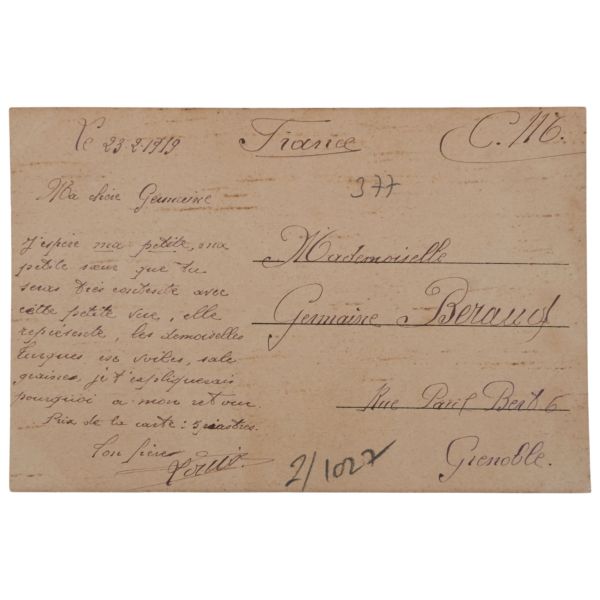 Le 23-2-1919
France
C.M.
377
Ma chère Germaine
J'espère ma petite, ma
petite sœur que tu
seras très contente avec
cette petite vue, elle
représente, les demoiselles
turques voiles, sale
graines, je t'expliquerais
pourquoi a mon retour.
Prix de la carte: piastres.
Ton frère
Louis
Mademoiselle
Germaine Beraud
Rue Paul Bert 6
Grenoble.
2/1027